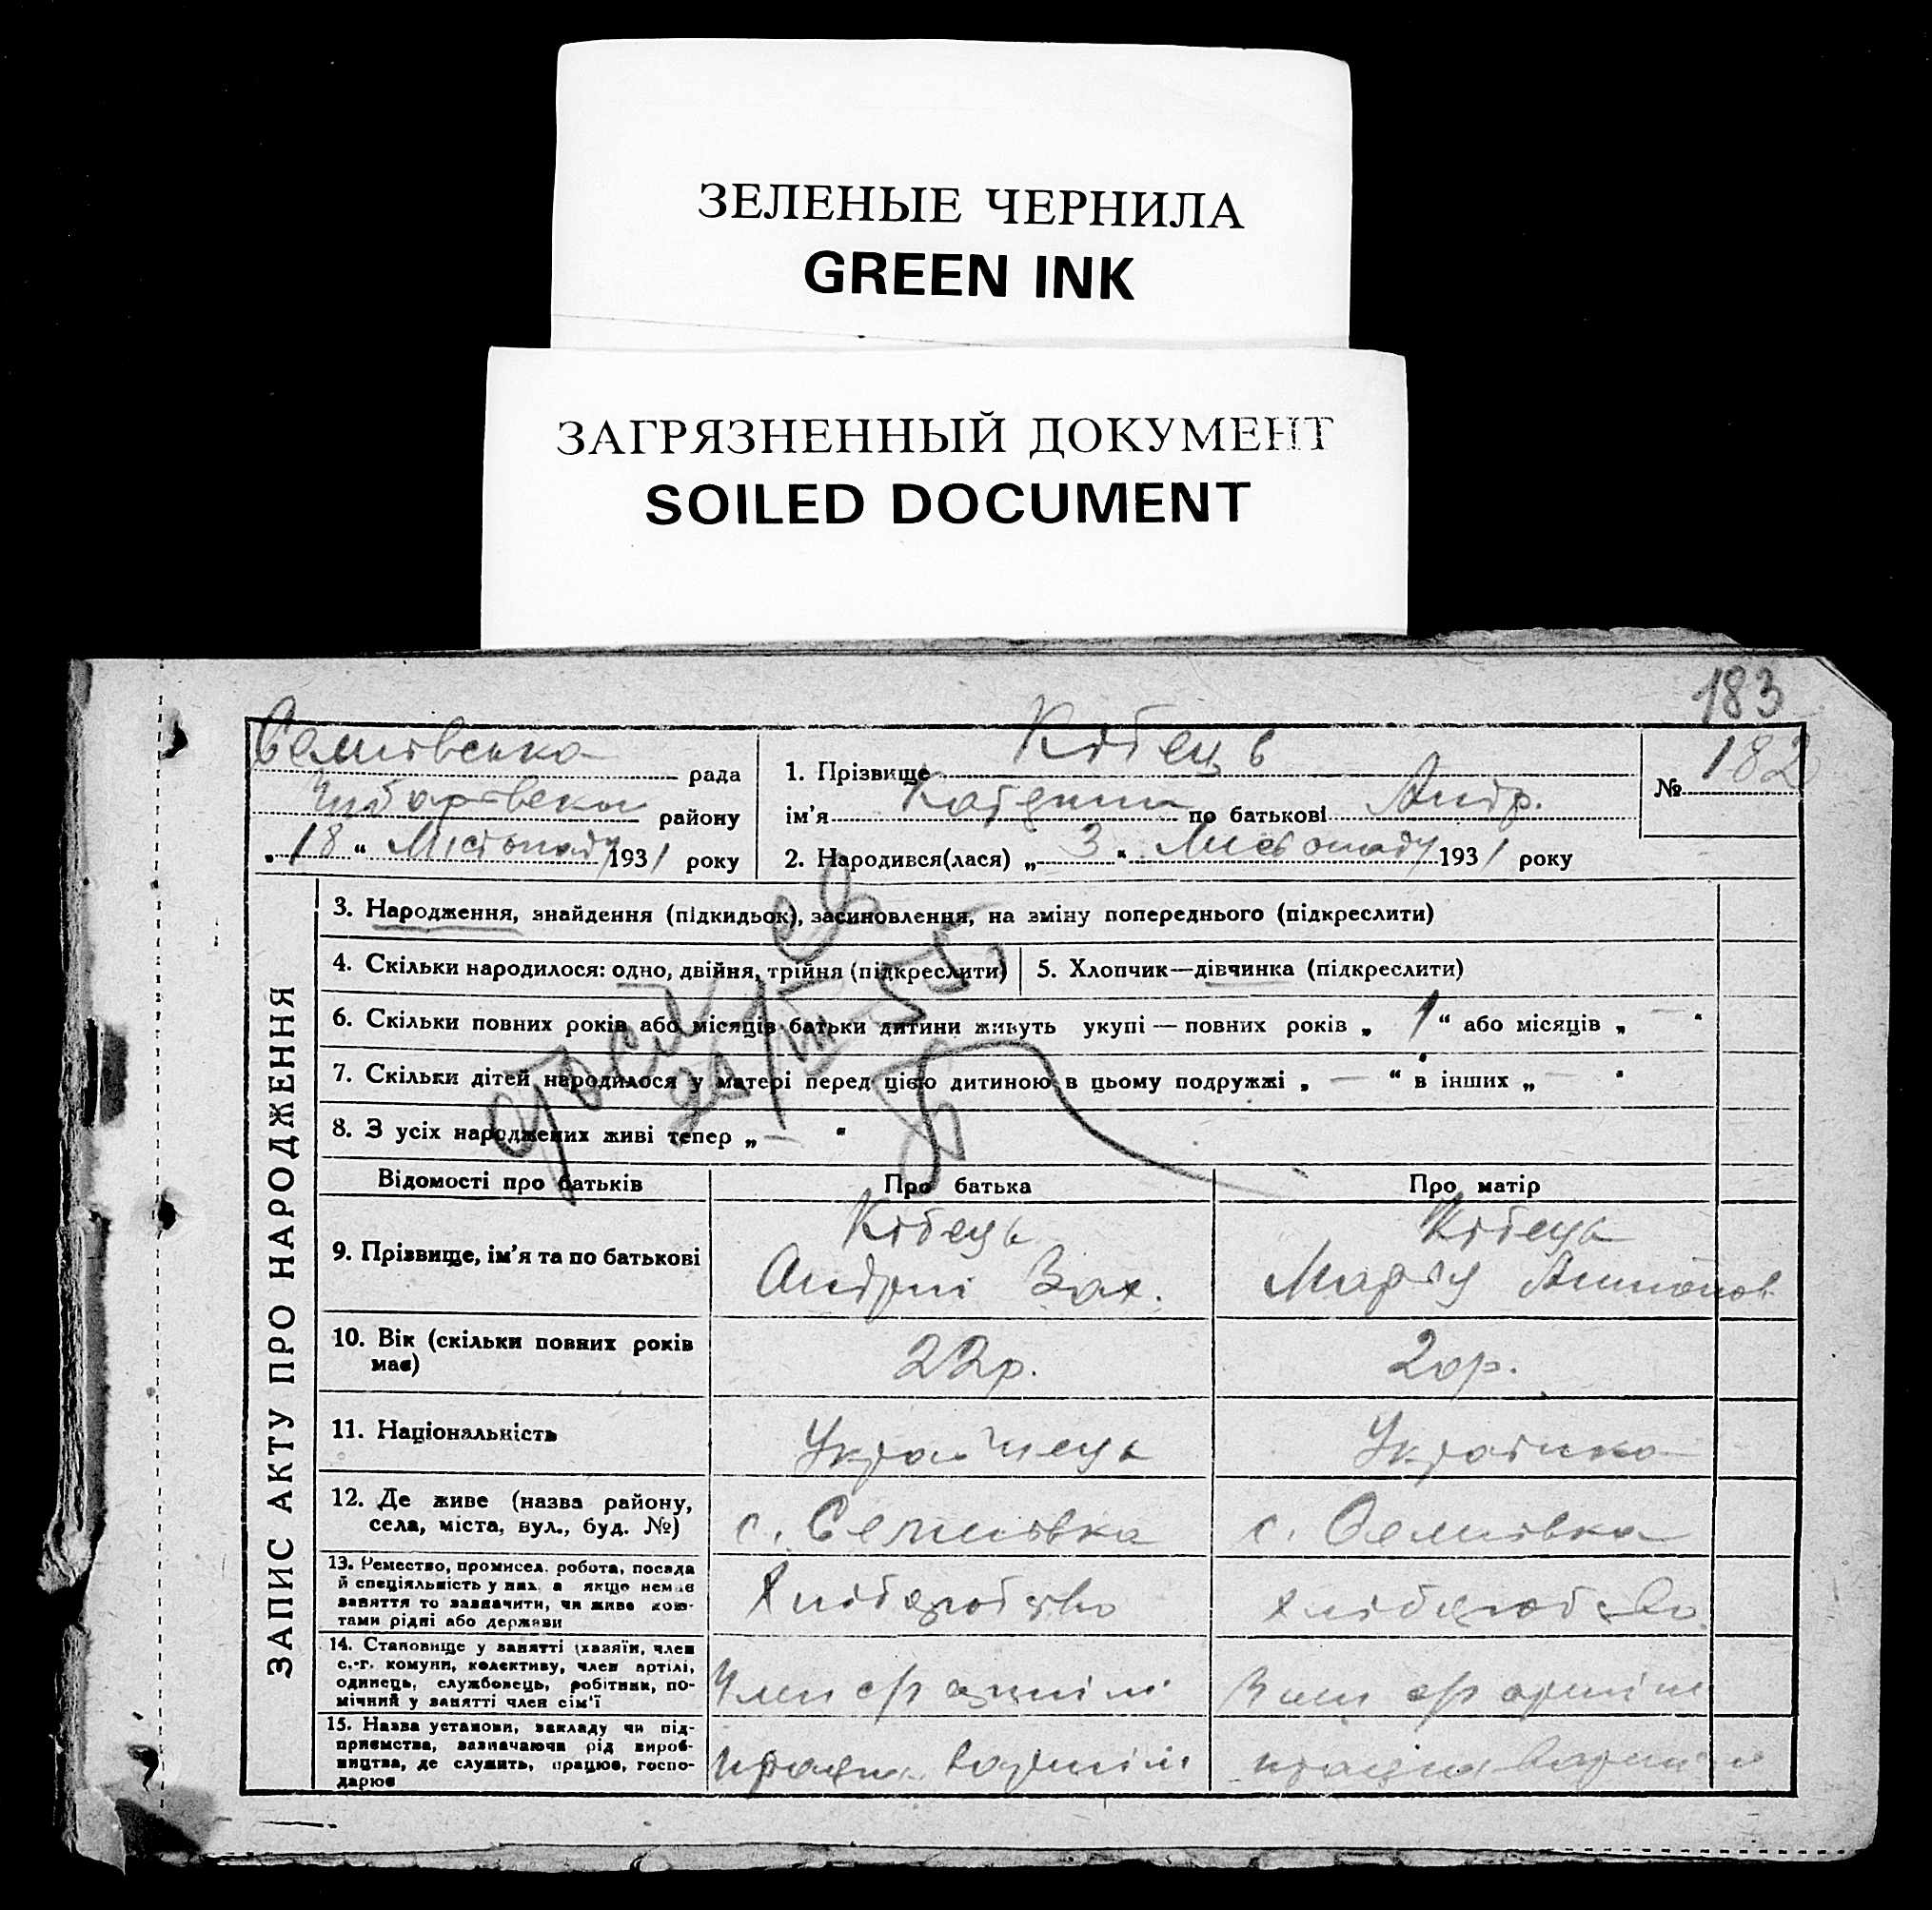 ЗЕЛЕНЫЕ ЧЕРНИЛА
GREEN INK
ЗАГРЯЗНЕННЫЙ ДОКУМЕНТ
SOILED DOCUMENT
183
рада
району
„18“ Листопаду 1931 року
1. Прізвище Кібець
ім'я по батькові Андр.
2. Народився(лася) „3“ Листопаду 1931 року
№ 182
ЗАПИС АКТУ ПРО НАРОДЖЕННЯ
3. Народження, знайдення (підкидьок), засиновлення, на зміну попереднього (підкреслити)
4. Скільки народилося: одно, двійня, трійня (підкреслити)
5. Хлопчик—дівчинка (підкреслити)
6. Скільки повних років або місяців батьки дитини живуть укупі — повних років „1“ або місяців „—“
7. Скільки дітей народилося у матері перед цією дитиною в цьому подружжі „—“ в інших „—“
8. З усіх народжених живі тепер „—“
Відомості про батьків
Про батька
Про матір
9. Прізвище, ім'я та по батькові
Кібець
Андрій Зах.
Кібець
Марія Антонов
10. Вік (скільки повних років
має)
22р.
20р.
11. Національність
Українець
Українка
12. Де живе (назва району,
села, міста, вул., буд. №)
с. Семенівка
с. Семенівка
13. Ремество, промисел, робота, посада
й спеціяльність у них, а якщо немає
заняття то зазначити, чи живе кош-
тами рідні або держави
Хліборобство
Хліборобство
14. Становище у занятті (хазяїн, член
с.-г. комуни, колективу, член артілі,
одинець, службовець, робітник, по-
мічний у занятті член сім'ї
Член с/г артілі
Член с/г артілі
15. Назва установи, закладу чи під-
приємства, зазначаючи рід вироб-
ництва, де служить, працює, госпо-
дарює
в артілі
в артілі